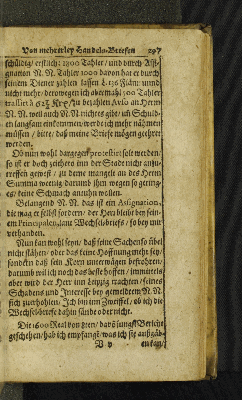 Von mehrerley Handels-Brieffen 297
schüldig / erstlich: 1300 Thaler / und durch Assi-
gnation N. N. Tahler 1000 davon hat er durch
seinen Diener zahlen lassen ℔. 136 Fläm: unnd
nicht mehr / derowegen ich abermahl 500 Tahler
trassiret à 62¾ Krz / zu bezahlen Avisa an Herrn
N. N. weil auch N. N nichtes gibt / ich Schuld-
ten langsam einkommen / werd ich mehr nähmen
müssen / bitte / daß meine Briefe mögen geehret
werden.
Ob nun wohl dargegen protestiret solt werden
so ist er doch zeithero inn der Stadt nicht anzu-
treffen gewest / zu deme mangels an des Herrn
Summa wenig darumb ihm wegen so gering-
es / keine Schmach anthun wollen.
Belangend N. N. das ist ein Assignation,
die mag er selbst fordern / der Herr bleibt bey sein-
em Principalen, laut Wechselbriefs / so bey mir
verhanden.
Nun kan wohl seyn / daß seine Sachen so übel
nicht stähen / oder das keine Hoffnung mehr sey /
sondern daß sein Kern unterwägen befrohren,
darumb wil ich noch das beste hoffen / immittels
aber wird der Herr inn Leipzig trachten / seines
Schadens und Interesse bey gemeldtem N. N.
sich zuerhohlen / Ich bin inn Zweiffel / ob ich die
Wechselbriefe dahin sände oder nicht.
Die 1600 Real von zien / darüm jungst Bericht
geschehen / hab ich empfangen / was ich sie außgäd-